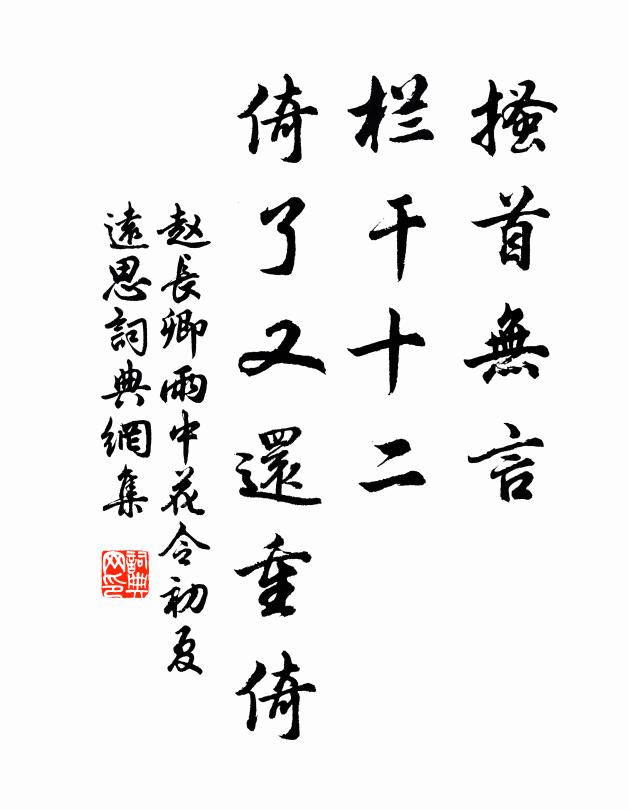 搔首無言
栏干十二
倚了又還重倚
赵長卿雨中花令初夏
遠思詞典網集
詞典
网印